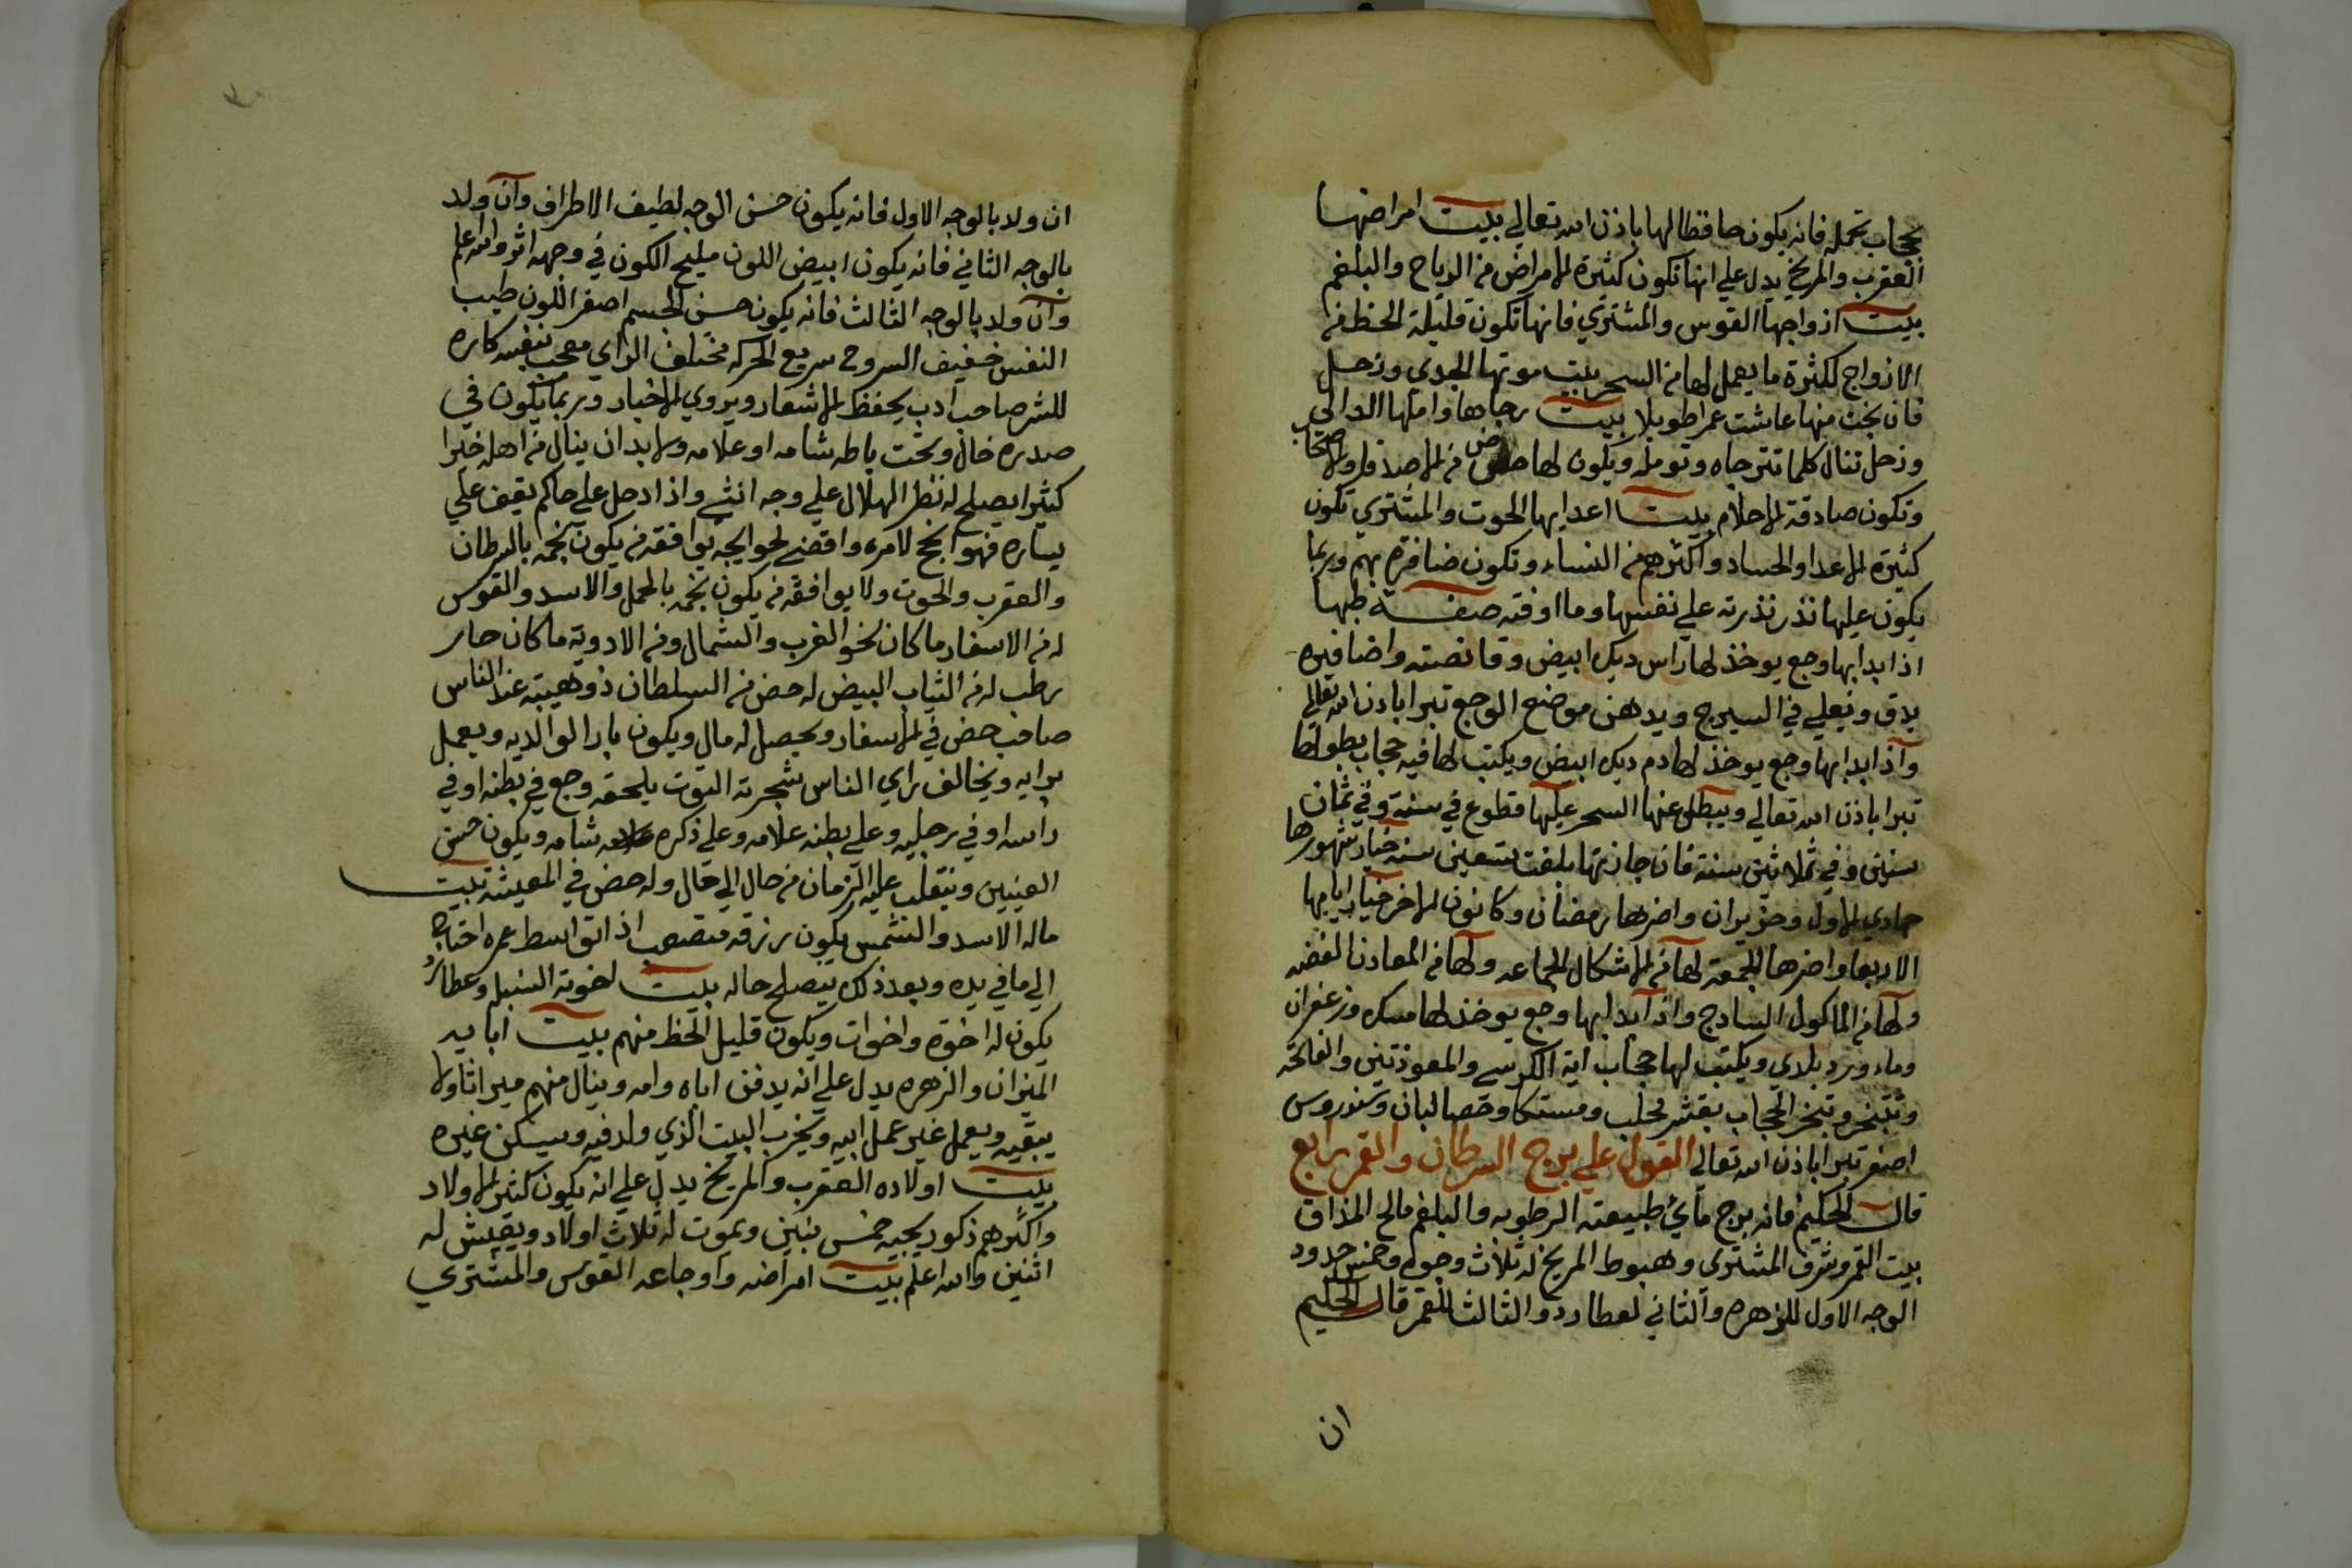 بحجاب تحمله فانه يكون حافظا لها باذن الله تعالي بيت امراضها
العقرب والمريخ يدل علي انها تكون كثيرة الامراض من الرياح والبلغم
بيت ازواجها القوس والمشتري فانها تكون قليلة الحظ من
الازواج لكثرة ما يعمل لها من السحر بيت موتها الجدي وزحل
فان نجت منها عاشت عمرا طويلا بيت رجاها واملها الدالي
وزحل تنال كلما تترجاه وتومله ويكون لها حض من الاصدقا والاصحاب
وتكون صادقة الاحلام بيت اعدايها الحوت والمشتري تكون
كثيرة الاعدا والحساد واكثرهم من النساء وتكون ضافرة بهم وربما
يكون عليها نذر نذرته علي نفسها وما اوفته صفة طبها
اذا بدا بها وجع يوخذ لها راس ديك ابيض وقانصته واضافيره
يدق ويغلي في السيرج ويدهن موضع الوجع تبرا باذن الله تعالي
واذا بدا بها وجع يوخذ لها دم ديك ابيض ويكتب لها فيه حجاب بطولها
تبرا باذن الله تعالي ويبطل عنها السحر عليها قطوع في سنة وفي ثمان
سنين وفي ثلاثين سنة فان جازتها بلغت تسعين سنه خيار شهورها
جمادي الاول وحزيران واضرها رمضان وكانون الاخر خيار ايامها
الاربعا واضرها الجمعة لها من الاشكال الجماعه ولها من المعادن الفضه
ولها من الماكول السادج واذا بدا بها وجع يوخذ لها مسك وزعفران
وماء ورد بلدي ويكتب لها حجاب اية الكرسي والمعوذتين والفاتحة
وتتبخر وتبخر الحجاب بقشر محلب ومستكا وحصا لبان وسندروس
اصفر تبرا باذن الله تعالي القول علي برج السرطان والقمر رابع
قال الحكيم فانه برج مائي طبيعته الرطوبه والبلغم مالح المذاق
بيت القمر وشرف المشتري وهبوط المريخ له ثلاث وجوه وخمس حدود
الوجه الاول للزهره والثاني لعطارد والثالث للقمر قال الحكيم
ان
ان ولد بالوجه الاول فانه يكون حسن الوجه لطيف الاطراف وان ولد
بالوجه الثاني فانه يكون ابيض اللون مليح الكون في وجهه اثر والله اعلم
وان ولد بالوجه الثالث فانه يكون حسن الجسم اصفر اللون طيب
النفس خفيف الروح سريع الحركه مختلف الراي معجب بنفسه كاره
للشر صاحب ادب يحفظ الاشعار ويروي الاخبار وربما يكون في
صدره خال وتحت باطه شامه او علامه ولابد ان ينال من اهله خيرا
كثيرا يصلح له نظر الهلال علي وجه انثي واذا دخل علي حاكم يقف علي
يساره فهو انجح لامره واقضي لحوايجه يوافقه من يكون نجمه بالسرطان
والعقرب والحوت ولا يوافقه من يكون نجمه بالحمل والاسد والقوس
له من الاسفار ما كان نحو الغرب والشمال ومن الادوية ما كان حار
رطب له من الثياب البيض له حض من السلطان ذو هيبته عند الناس
صاحب حض في الاسفار ويحصل له مال ويكون بارا لوالديه ويعمل
برايه ويخالف راي الناس شجرته التوت يلحقه وجع في بطنه او في
راسه او في رجليه وعلي بطنه علامه وعلي ذكره شامه ويكون حسن
العينين ويتقلب عليه الزمان من حال الي حال وله حض في المعيشة بيت
ماله الاسد والشمس يكون رزقه متصعب اذا توسط عمره احتاج
الي ما في يده وبعد ذلك يتصلح حاله بيت اخوته السنبله وعطارد
يكون له اخوة واخوات ويكون قليل الحظ منهم بيت ابايه
الميزان والزهره يدل علي انه يدفن اباه وامه وينال منهم ميراثا ولا
يبقيه ويعمل غير عمل ابيه ويخرب البيت الذي ولد فيه ويسكن غيره
بيت اولاده العقرب والمريخ يدل علي انه يكون كثير الاولاد
واكثرهم ذكور يجيه خمس بنين ويموت له ثلاث اولاد ويعيش له
اثنين والله اعلم بيت امراضه واوجاعه القوس والمشتري